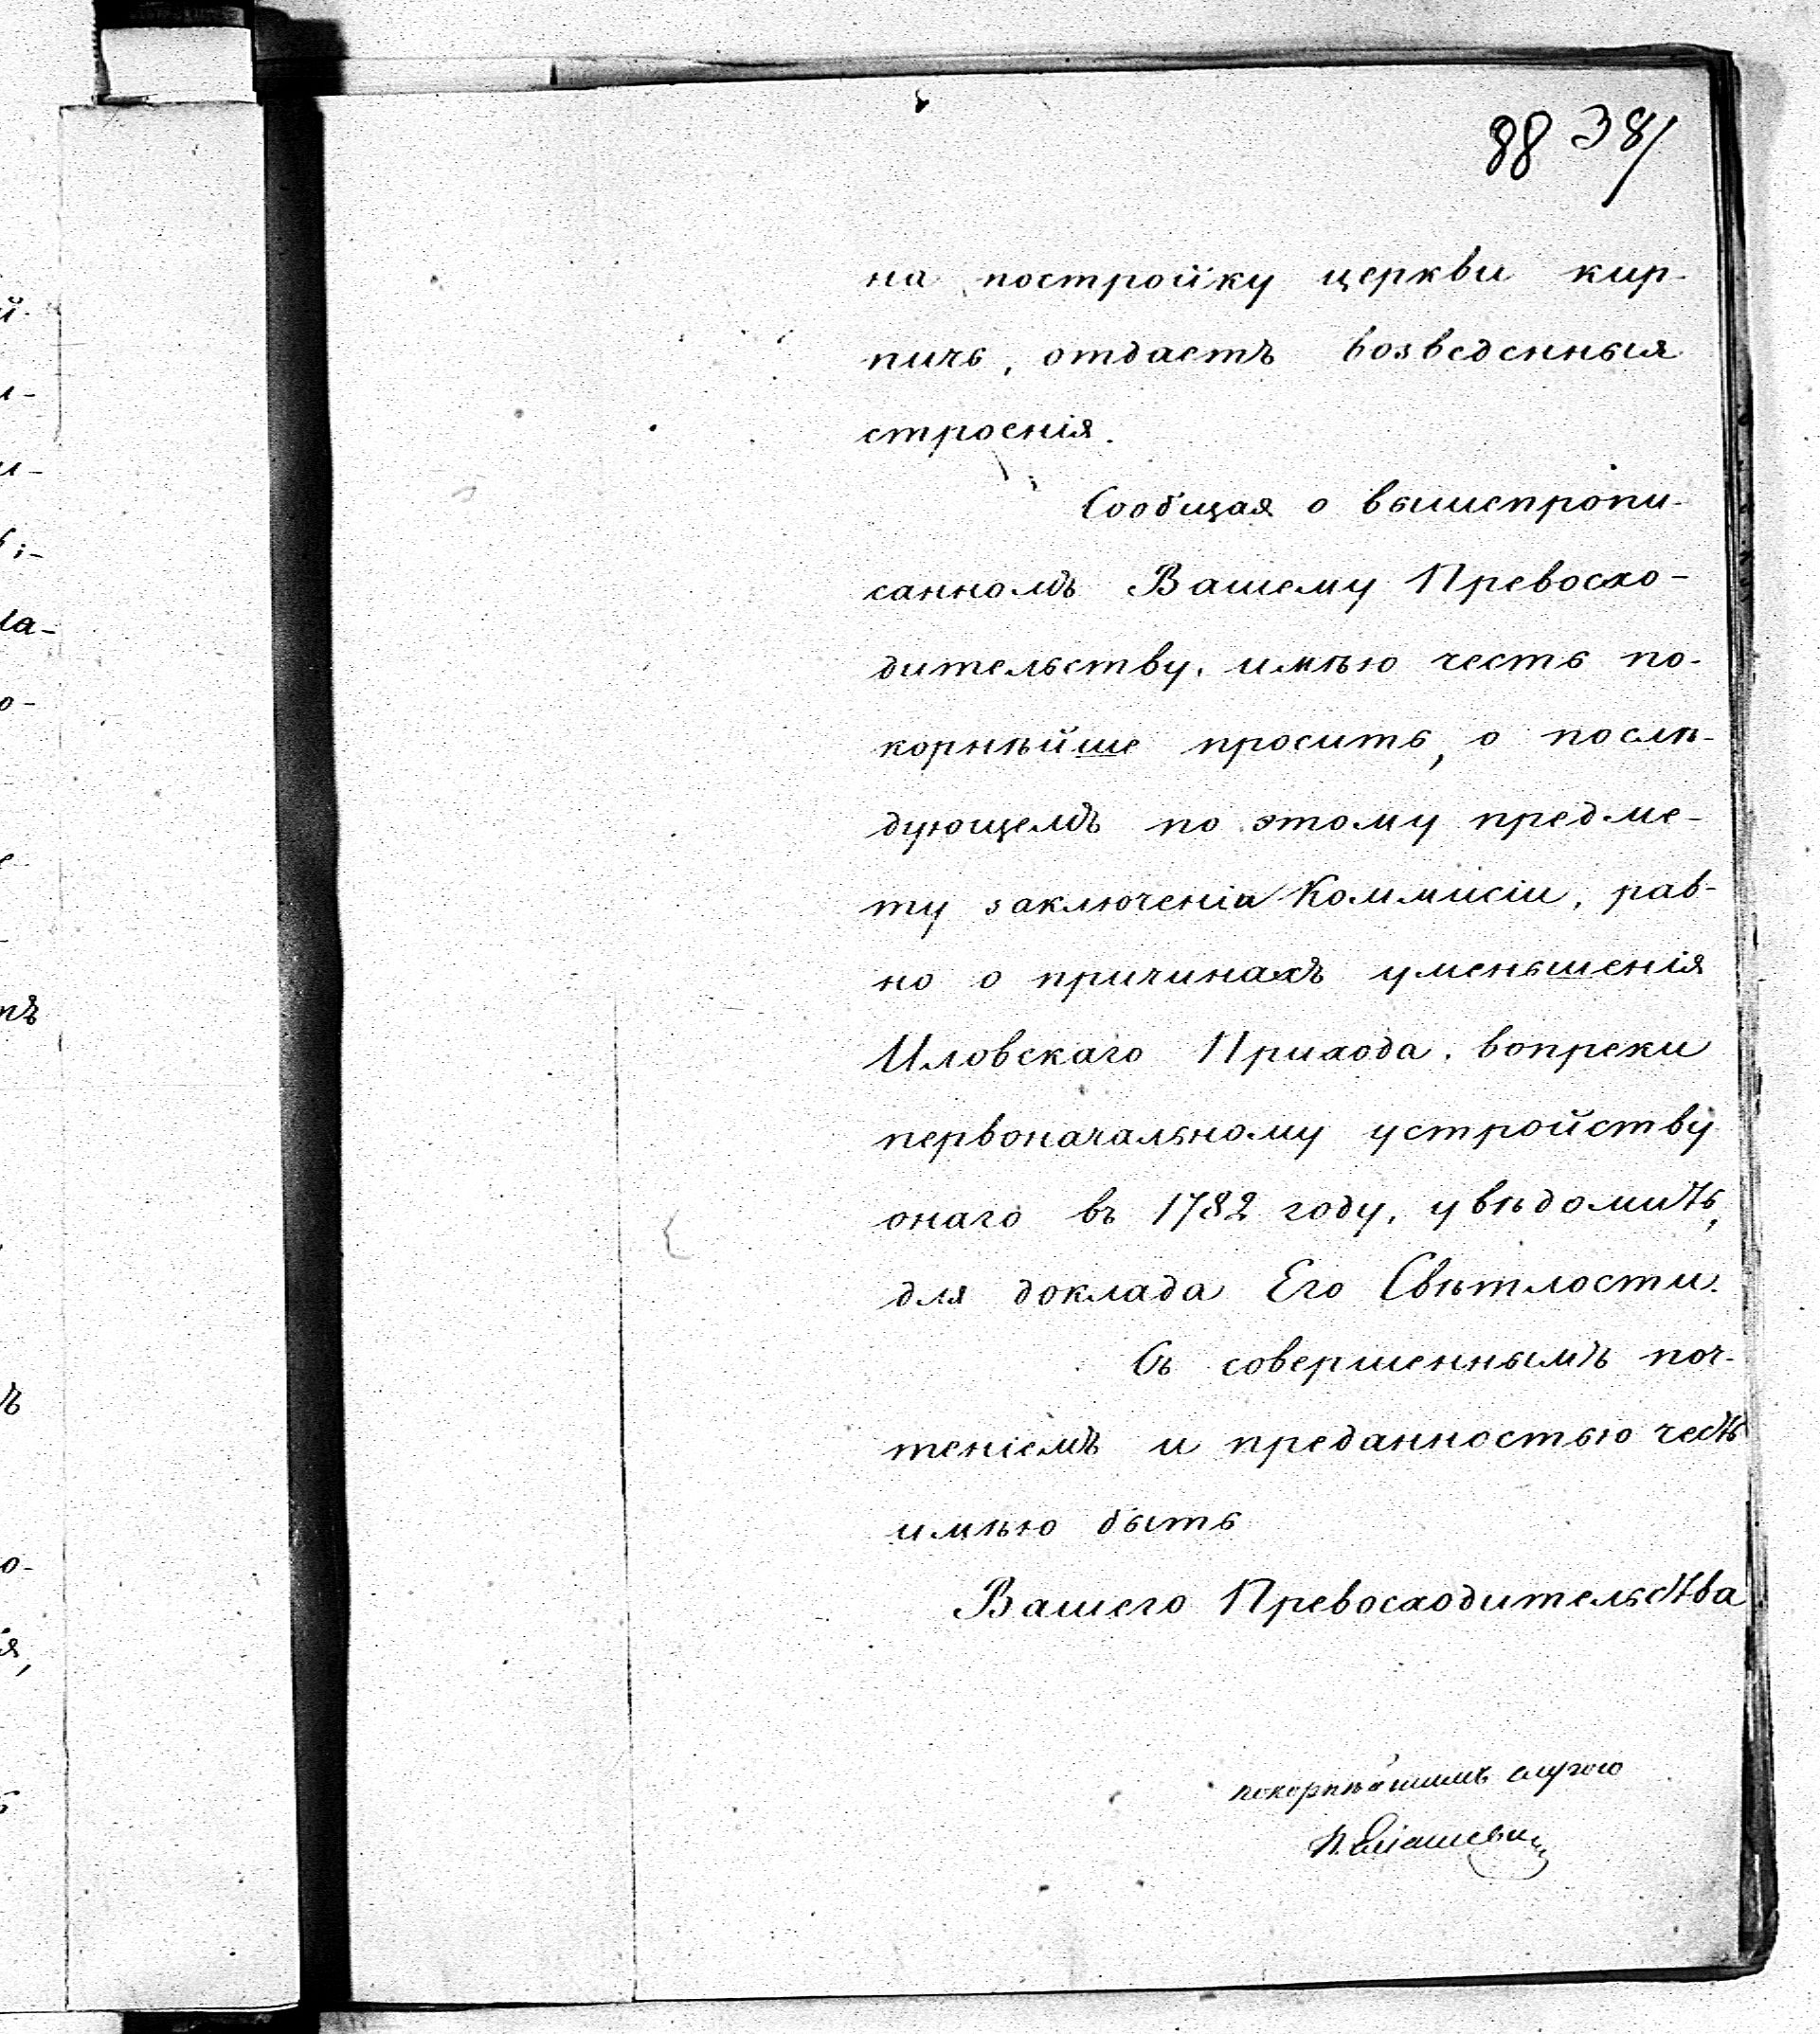 88 38/
на постройку церкви кир-
пичъ, отдастъ возведенныя
строенія.
Сообщая о вышепропи-
санномъ Вашему Превосхо-
дительству, имѣю честь по-
корнѣйше просить, о послѣ-
дующемъ по этому предме-
ту заключеніи Коммисіи, рав-
но о причинахъ уменьшенія
Иловскаго Прихода, вопреки
первоначальному устройству
онаго въ 1782 году, увѣдомить,
для доклада Его Свѣтлости.
Съ совершеннымъ поч-
теніемъ и преданностью честь
имѣю быть
Вашего Превосходительства
покорнѣйшимъ слугою